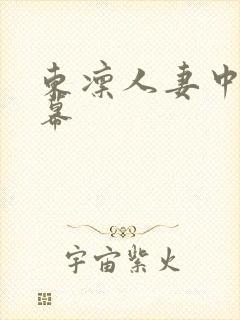 东凛人妻中
幕
宇宙紫火